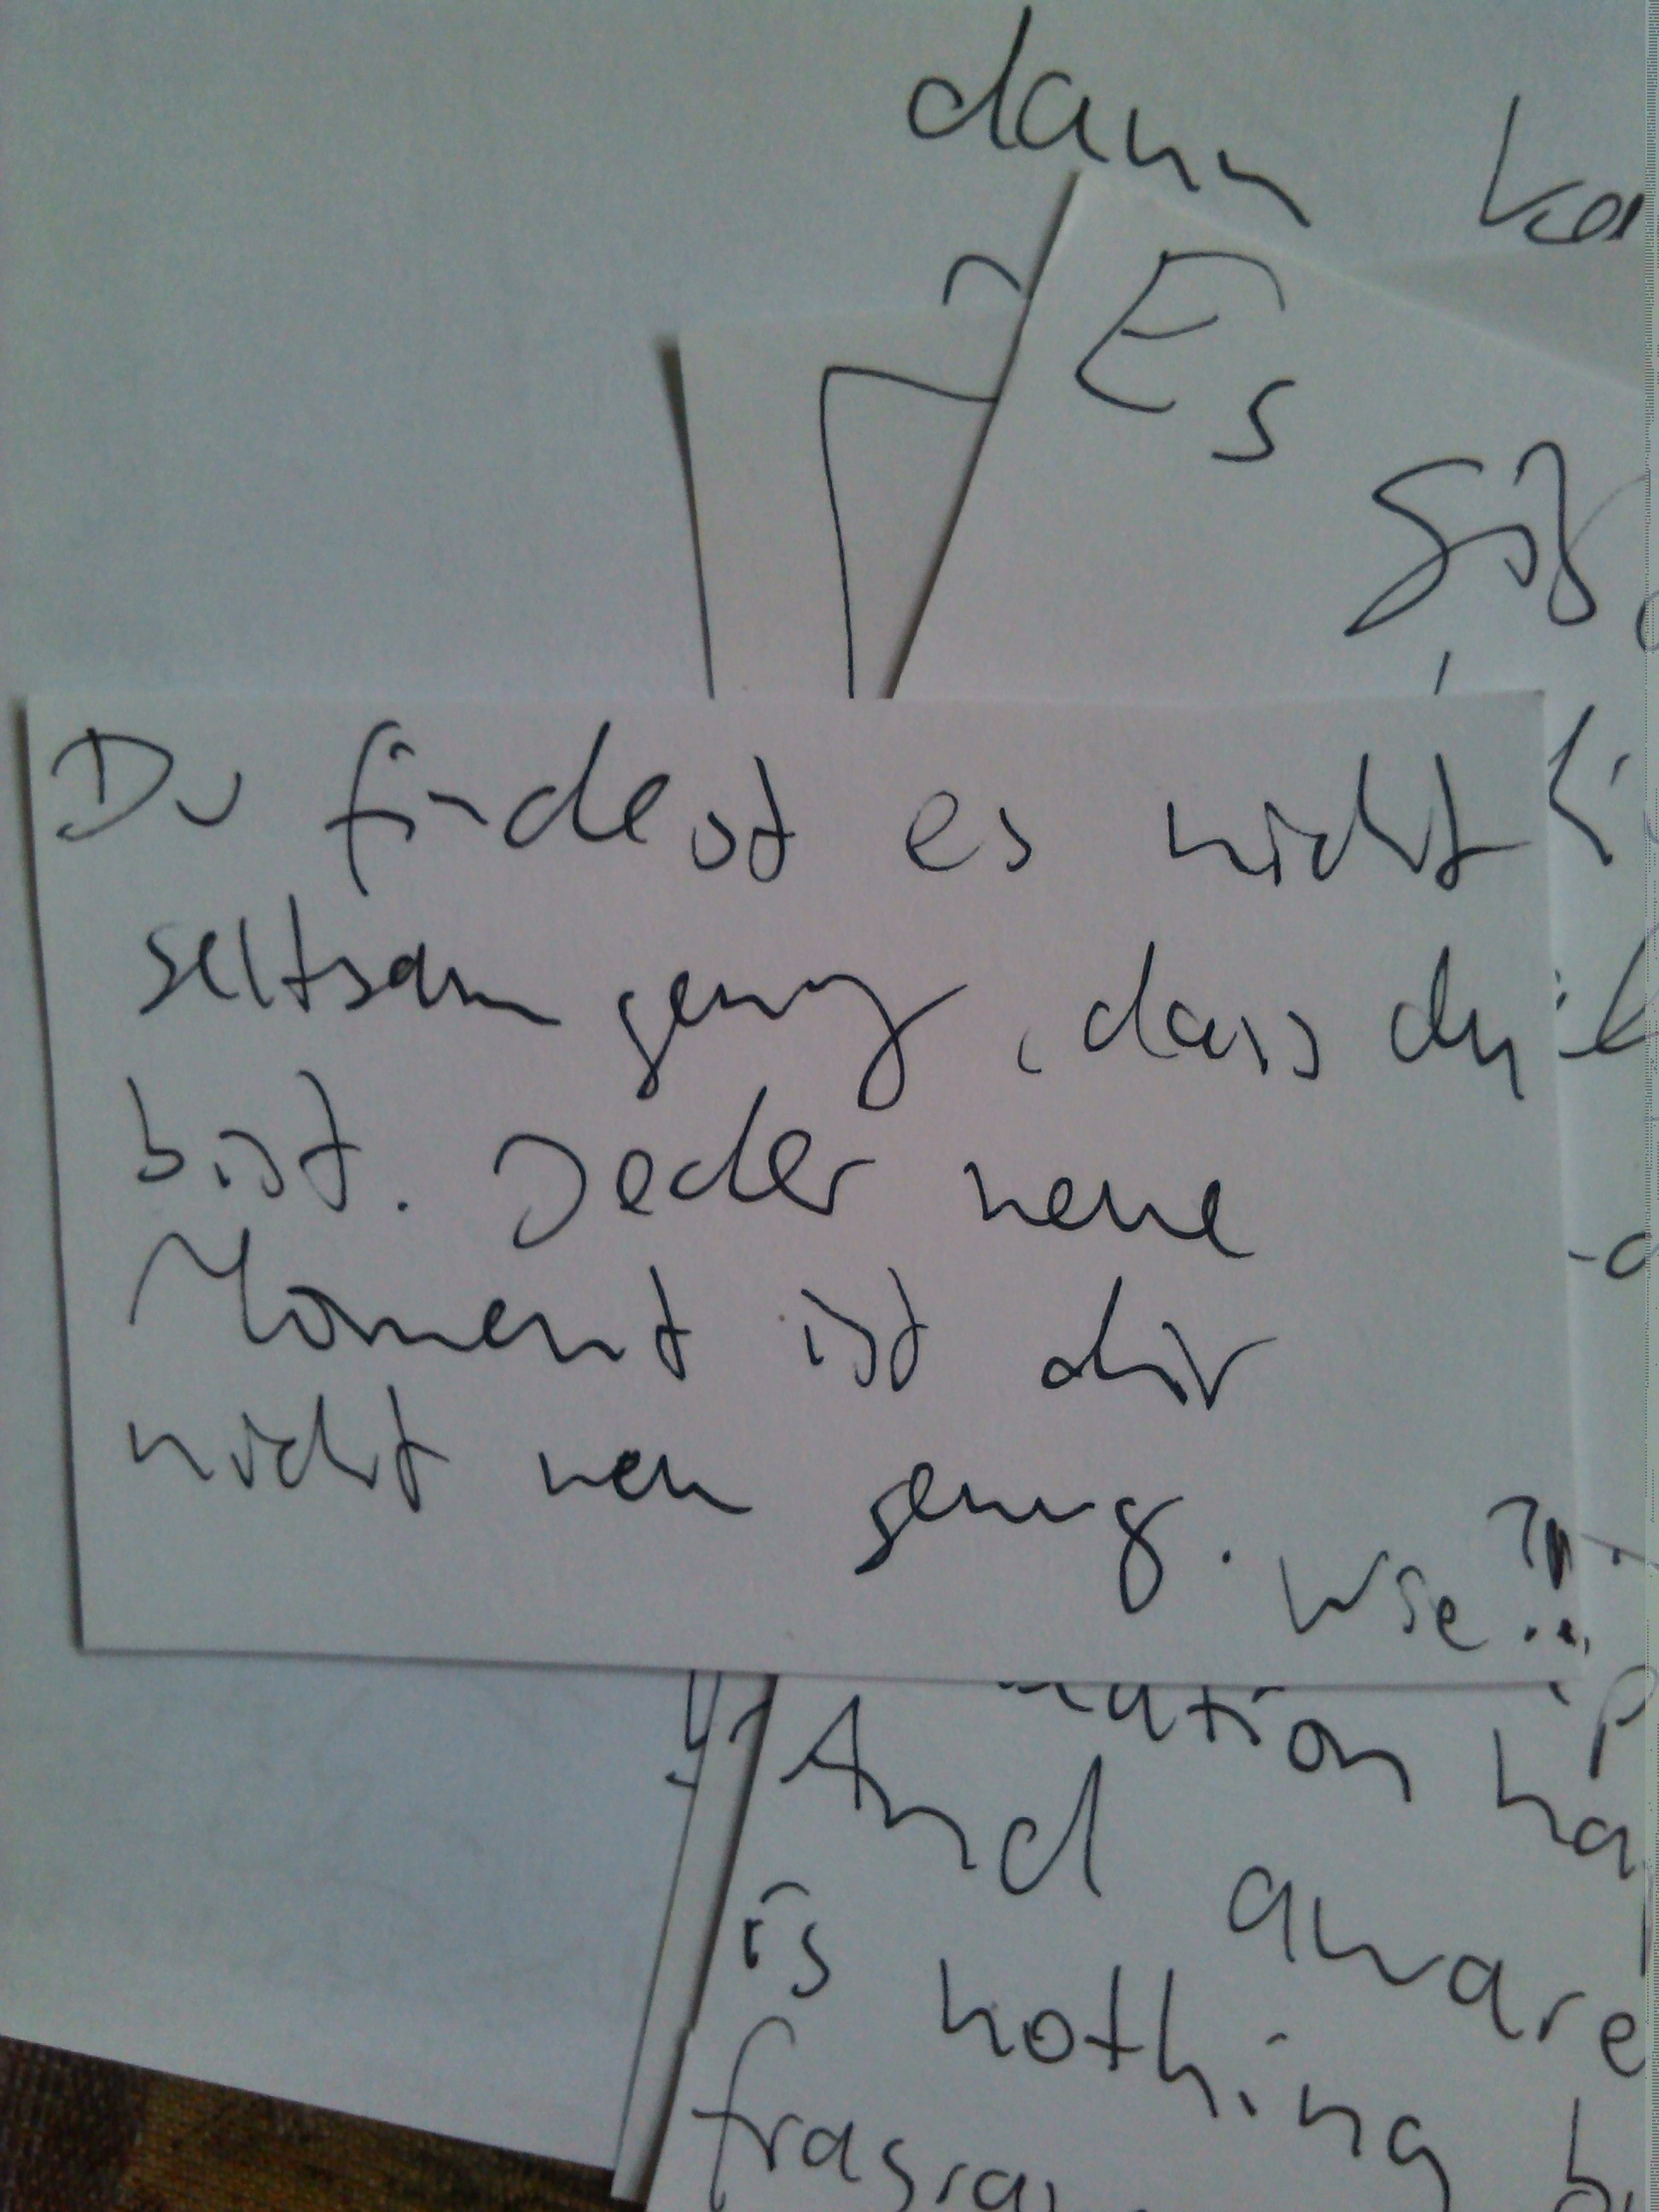 dann
Es
Du findest es nicht
seltsam genug, dass du
bist. Jeder neue
Moment ist dir
nicht neu genug. Wie?!!
And aware
is nothing